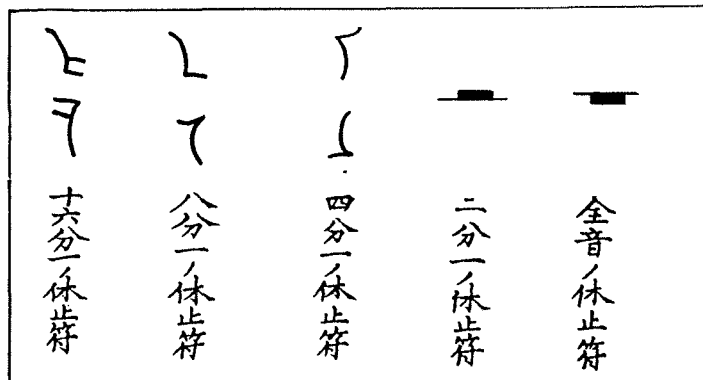 全音ノ休止符
二分一ノ休止符
四分一ノ休止符
八分一ノ休止符
十六分一ノ休止符